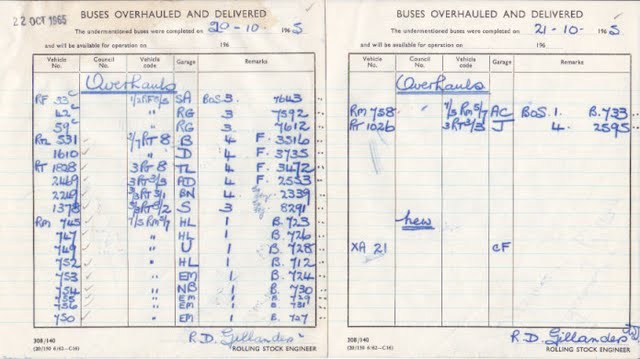 22 OCT 1965
BUSES OVERHAULED AND DELIVERED
The undermentioned buses were completed on 20-10- 1965
and will be available for operation on 196
Vehicle No. Council No. Vehicle code Garage Remarks
Overhauls
RF 33c 1/2RF5/3 SA BoS. 3. 7643
42c " RG 3 7592
59c " RG 3 7612
RTL 531 2/7RT8 B 4 F. 3516
1610 " D 4 F. 3735
RT 1828 3RT8 TL 4 F. 3472
2469 3RT3/3 AD 4 F. 2553
2249 3RT3/1 BN 4 2339
1378 3RT8/2 S 3 8291
RM 745 7/5 RM5/7 HL 1 B. 723
747 " HL 1 B. 726
749 " U 1 B. 728
752 " HL 1 B. 712
753 " EM 1 B. 724
754 " NB 1 B. 730
" EM 1 B. 729
756 " EM 1 B. 731
750 " EM 1 B. 727
308/140
R.D. Gillanders
ROLLING STOCK ENGINEER
BUSES OVERHAULED AND DELIVERED
The undermentioned buses were completed on 21-10- 1965
and will be available for operation on 196
Vehicle No. Council No. Vehicle code Garage Remarks
Overhauls
RM 758 7/5 RM5/7 AC BoS. 1. B. 733
RT 1026 3RT3/3 J 4. 2595
New
XA 21 CF
308/140
R.D. Gillanders
ROLLING STOCK ENGINEER